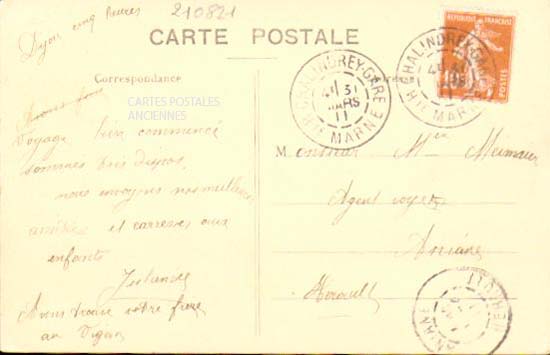 Dijon cinq heures
210821
CARTE POSTALE
Correspondance
CARTES POSTALES
ANCIENNES
Voyage bien commencé
sommes très dispos
nous envoyons nos meilleures
amitiés et caresses aux
enfants
votre frère
au Vigan
REPUBLIQUE FRANÇAISE
POSTES
CHALINDREY-GARE
31
MARS
11
HTE MARNE
CHALINDREY-GARE
HTE MARNE
Monsieur
Agent voyer
Aniane
Hérault
ANIANE
HERAULT